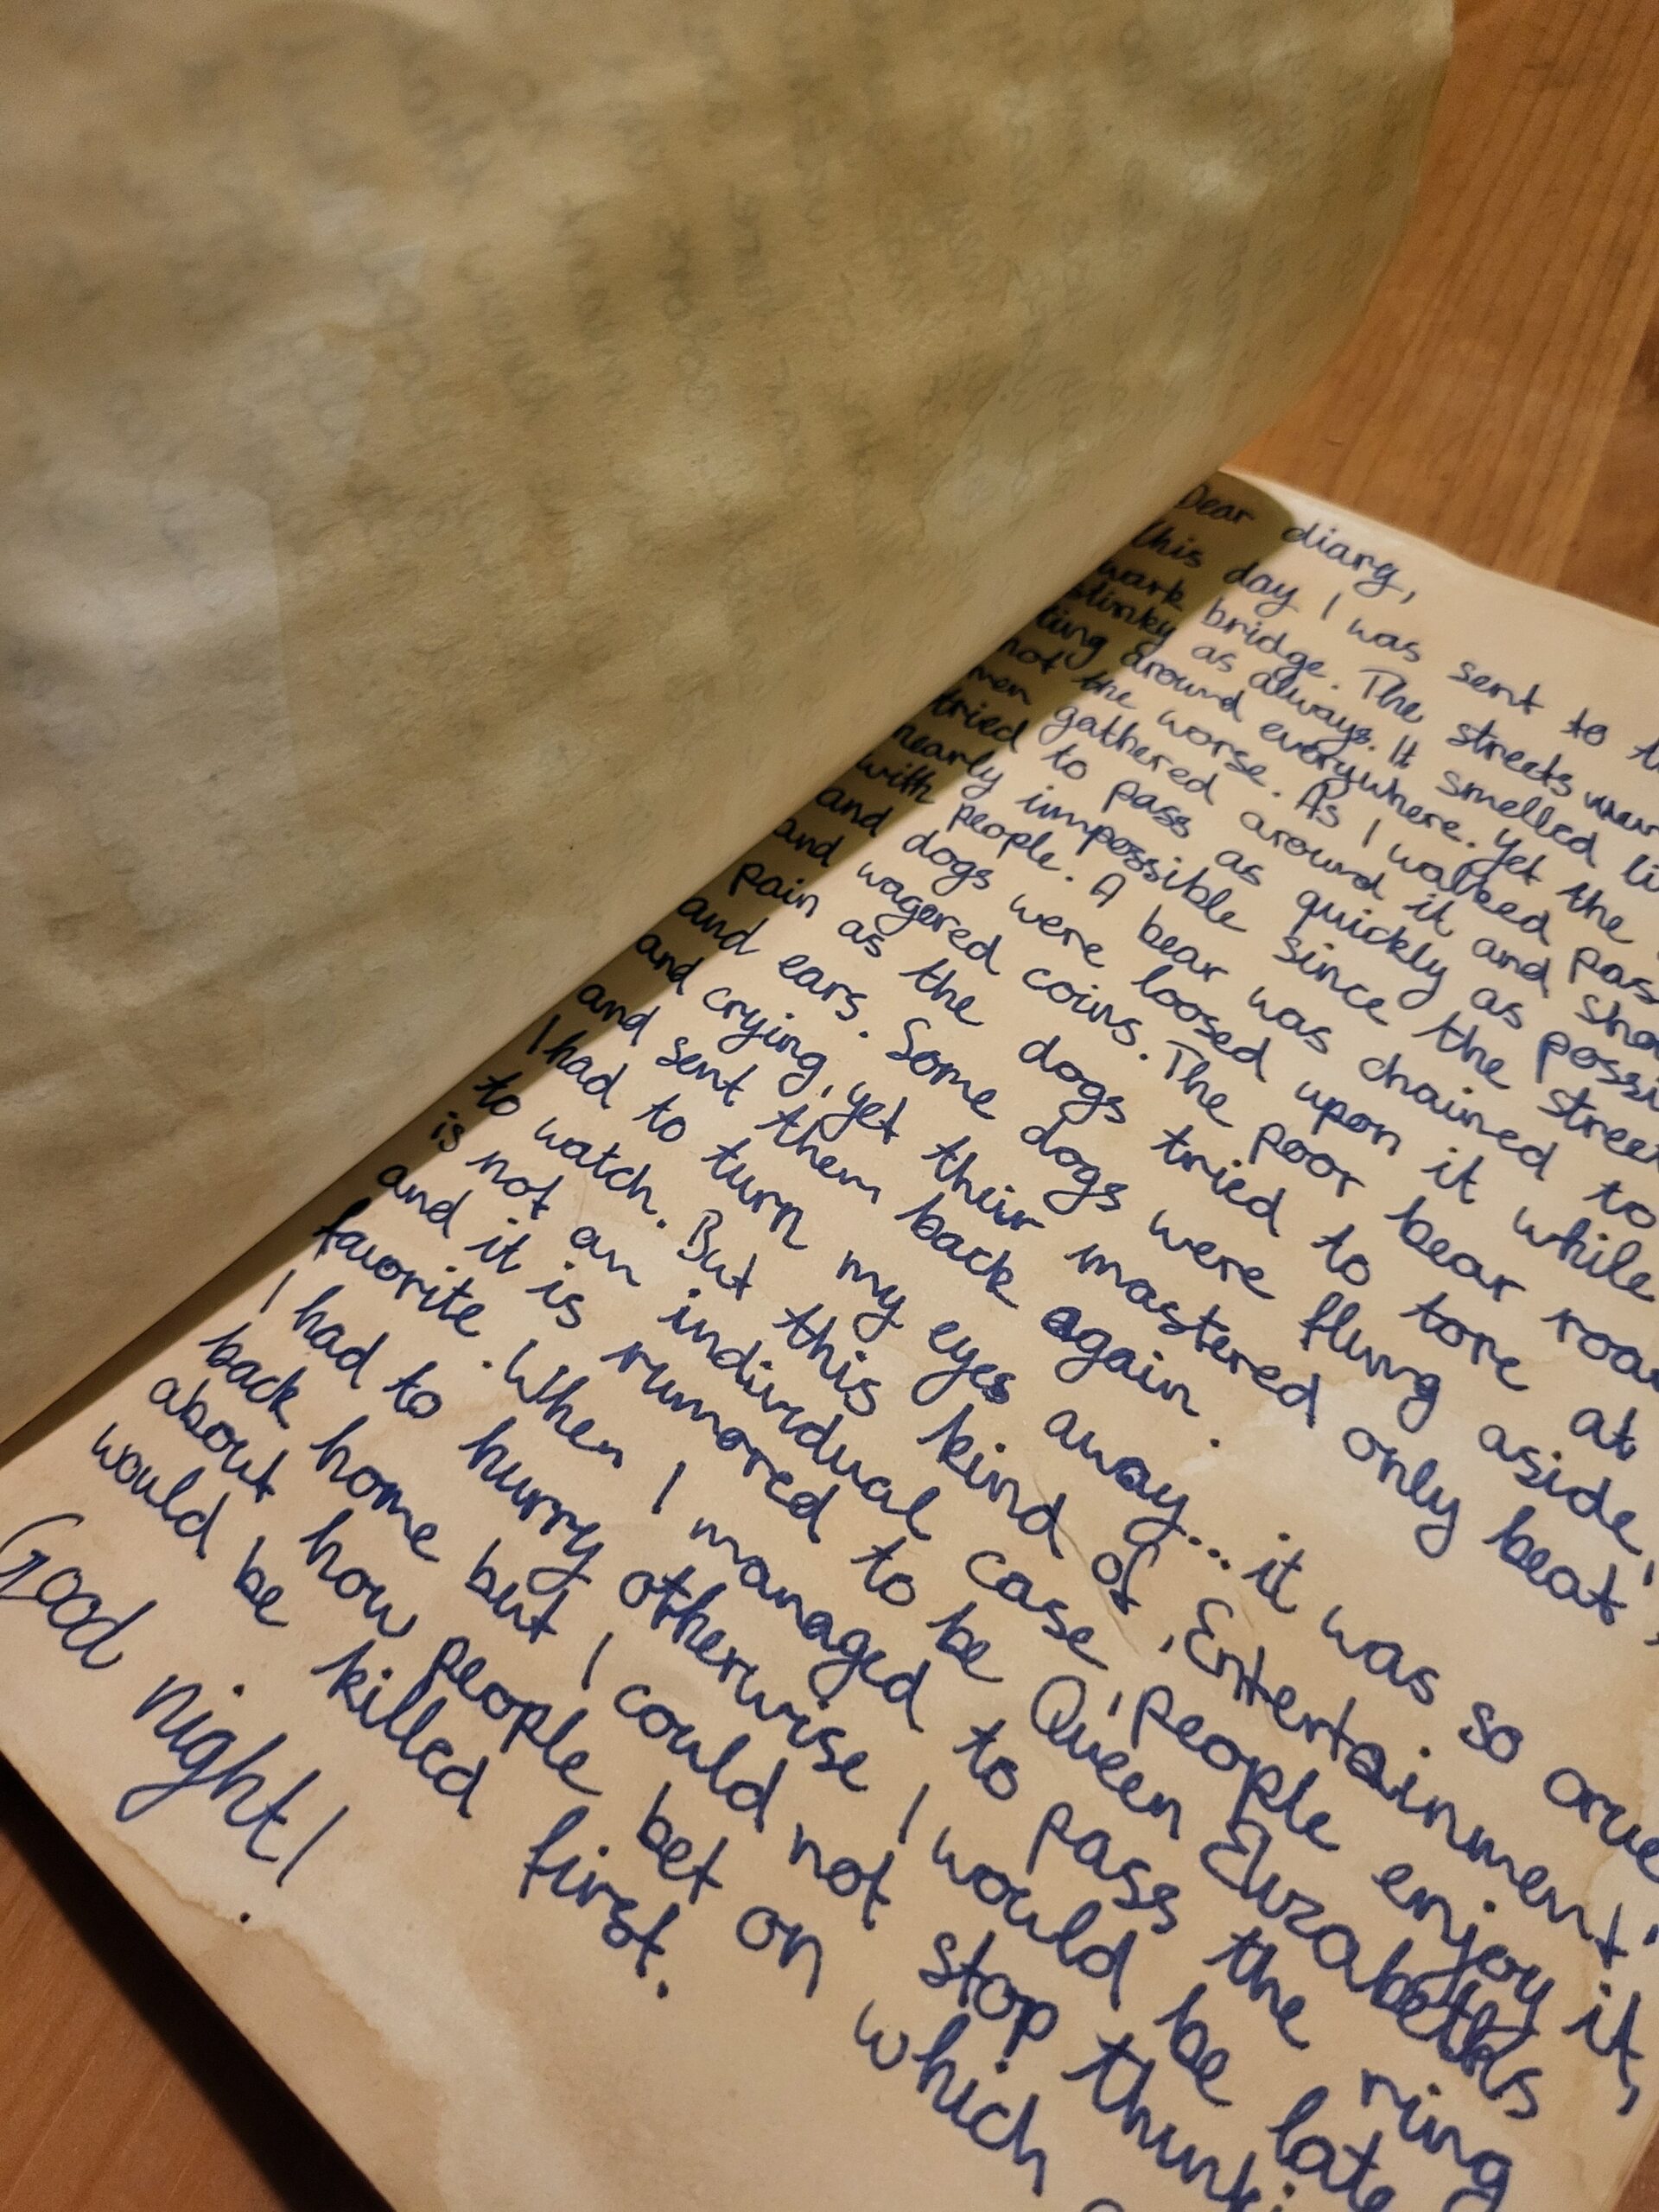 Dear diary,
this day I was sent to
wark bridge. The streets
stinky as always. It smelled
ting around everywhere. Yet the
not the worse. As I walked
men gathered around it and
tried to pass as quickly as
nearly impossible since the
with people. A bear was chained to
and dogs were loosed upon it while
and wagered coins. The poor bear
pain as the dogs tried to tore at
and ears. Some dogs were flung aside,
and crying, yet their mastered only beat
and sent them back again.
I had to turn my eyes away... it was so
to watch. But this kind of 'Entertainment'
is not an individual case, people enjoy it,
and it is rumored to be Queen Elizabeths
favorite. When I managed to pass the ring
I had to hurry otherwise I would be late
back home but I could not stop
about how people bet on which
would be killed first.
Good night!